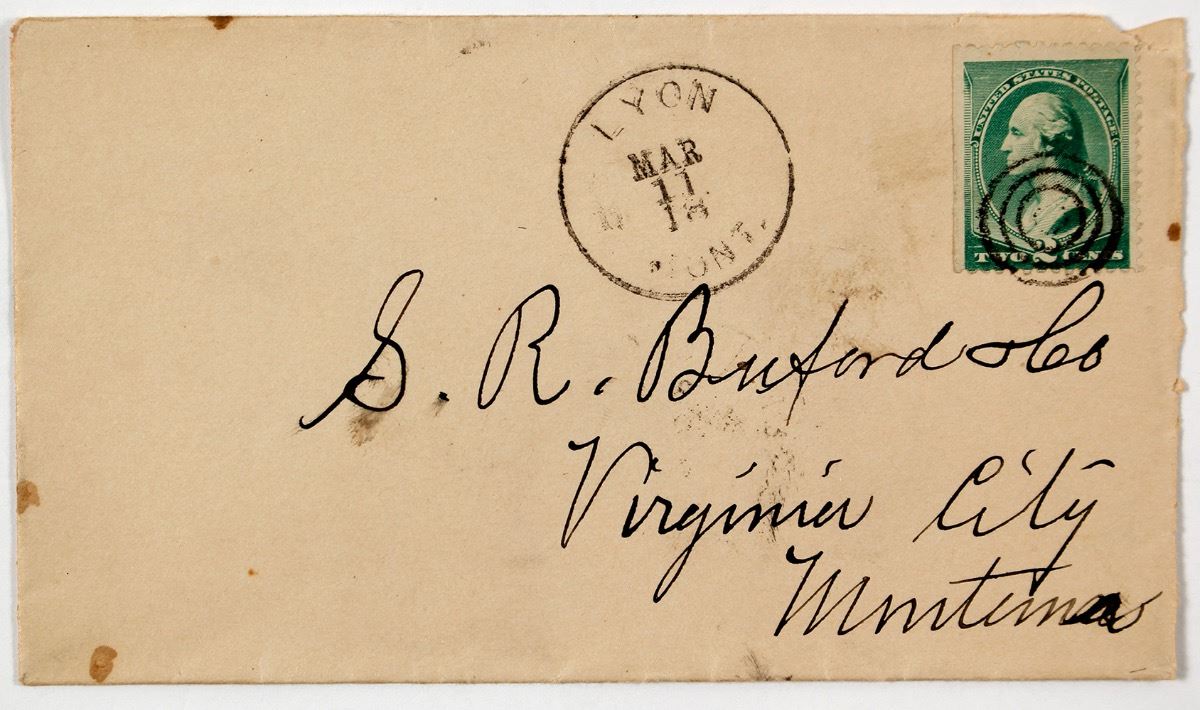 LYON
MAR
11
18
MONT.
UNITED STATES POSTAGE
TWO 2 CENTS
S. R. Buford & Co
Virginia City
Montana